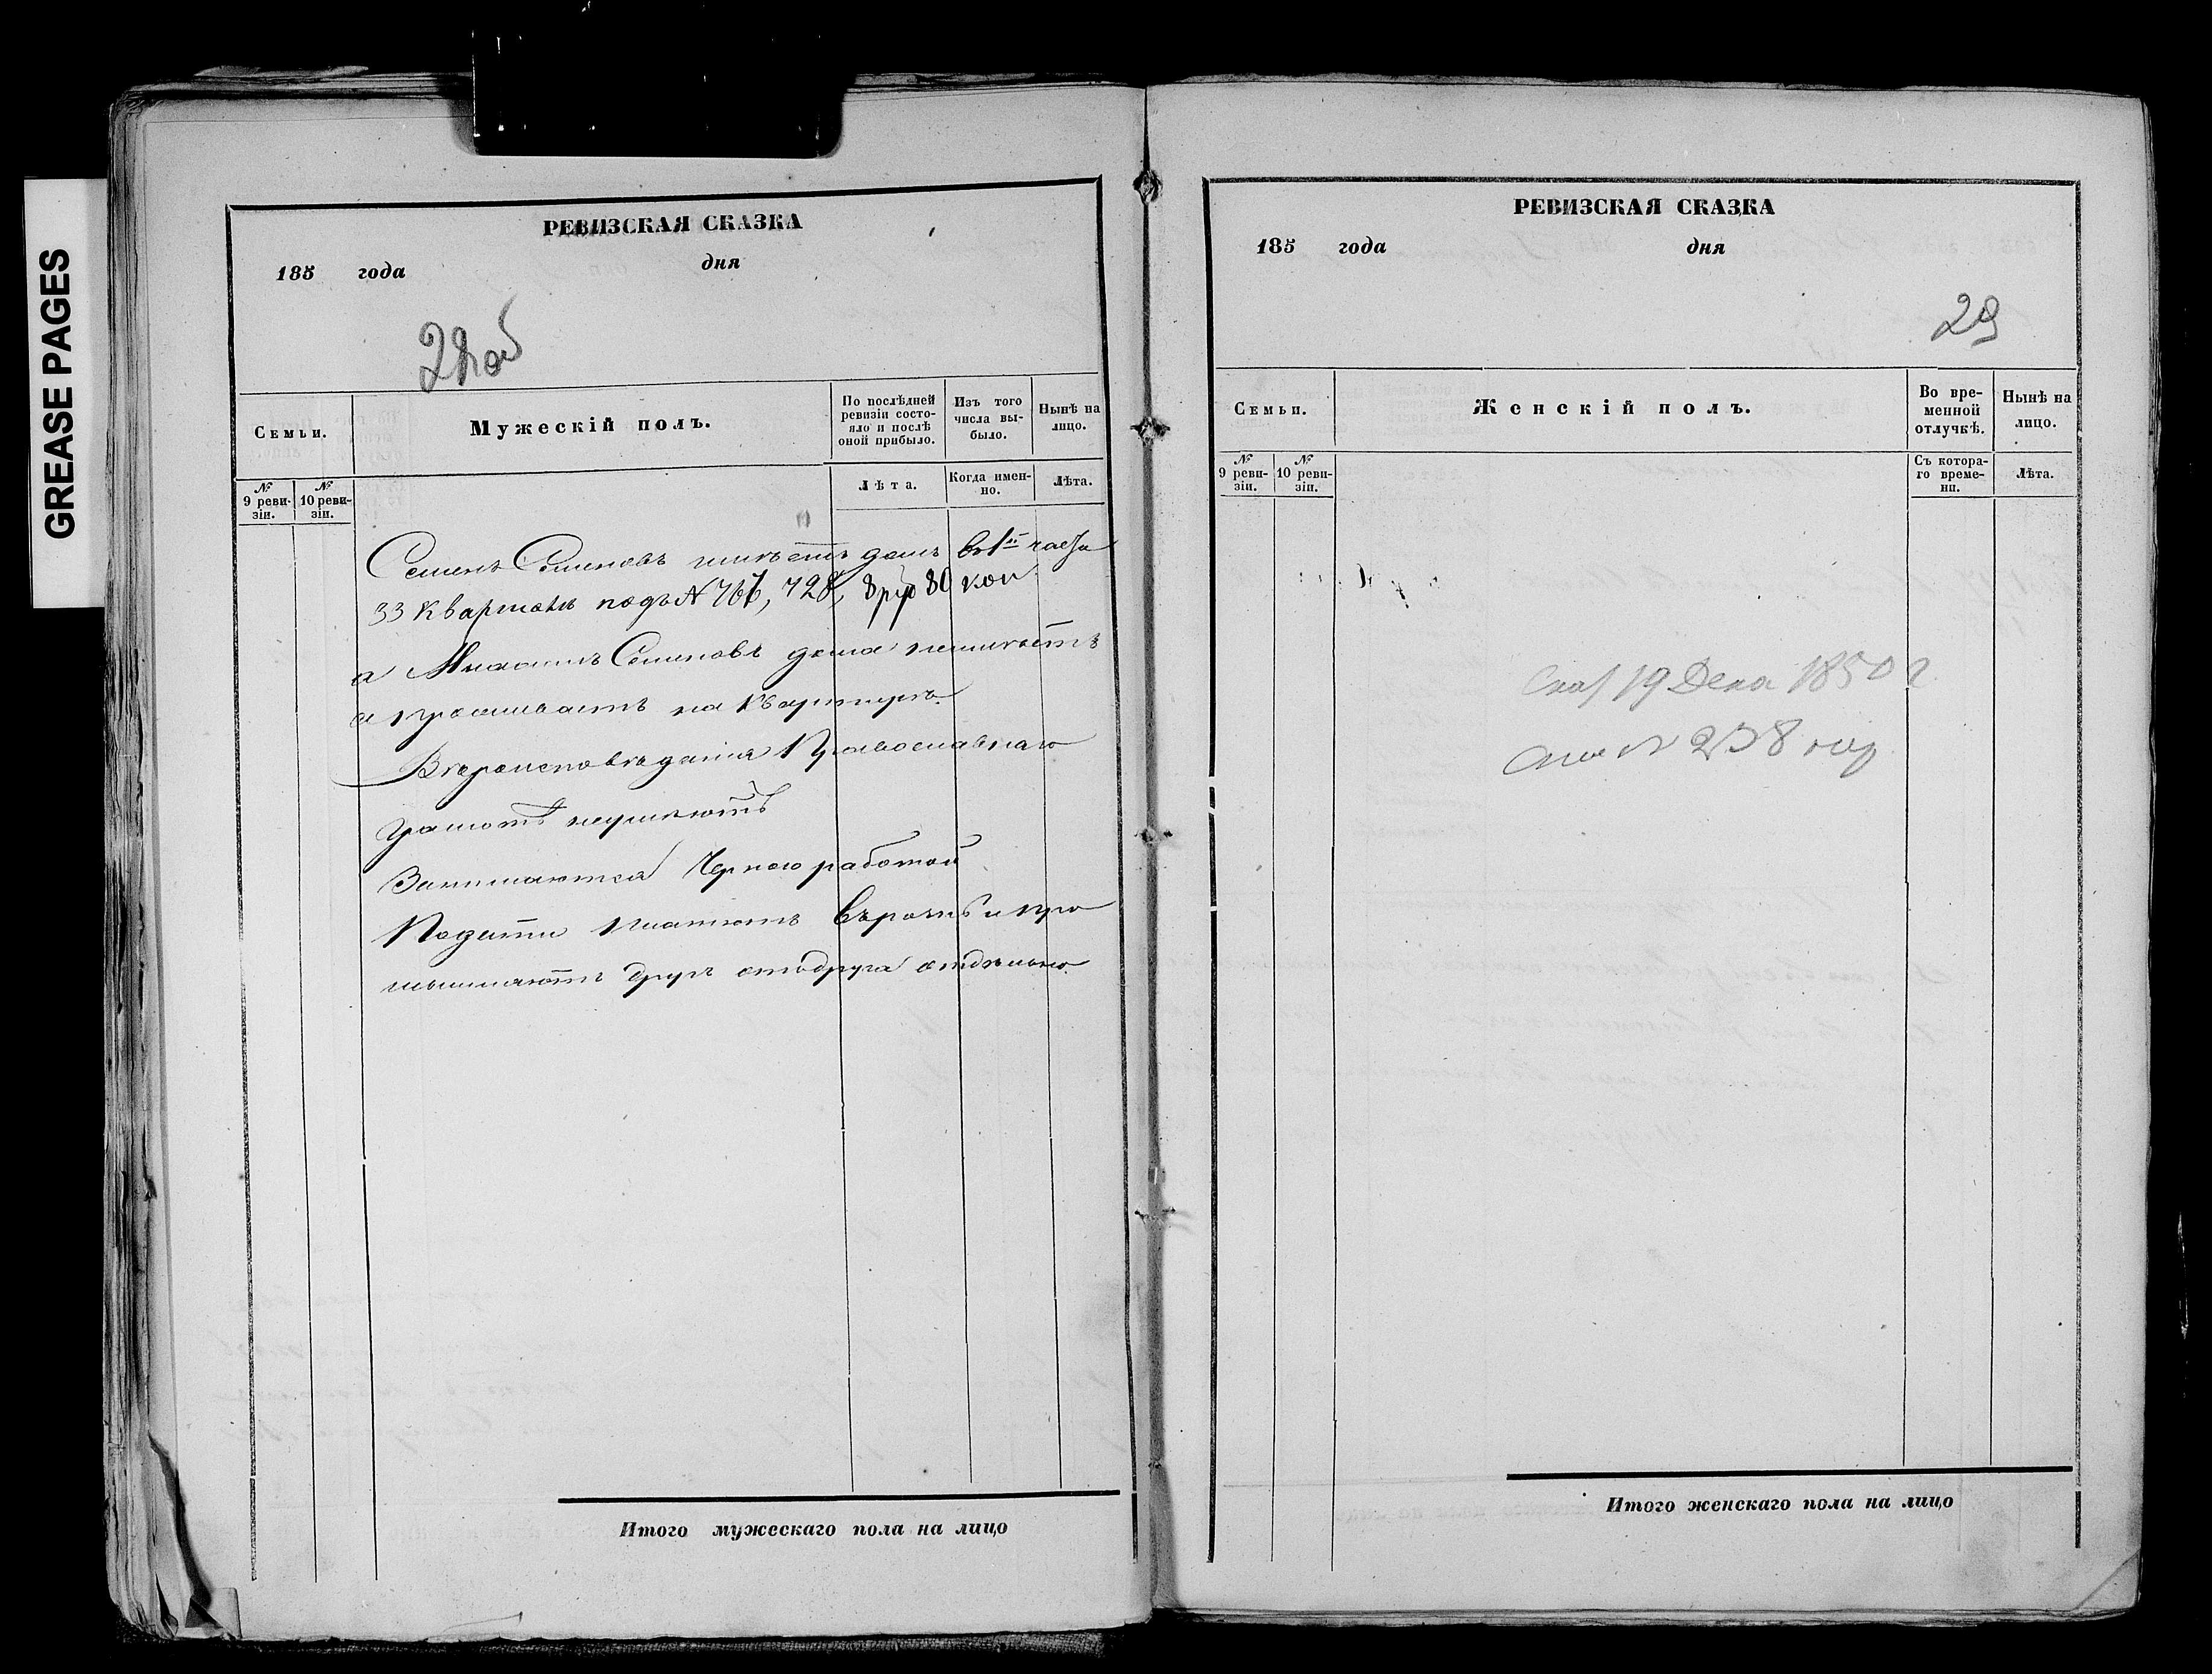 GREASE PAGES
РЕВИЗСКАЯ СКАЗКА
185 года дня
22об
Семьи.
Мужескій полъ.
По послѣдней ревизіи состо-
яло и послѣ оной прибыло.
Изъ того числа вы-
было.
Нынѣ на лицо.
№ 9 реви-
зіи.
№ 10 реви-
зіи.
Лѣта.
Когда имен-
но.
Лѣта.
Семенъ Семеновъ имѣетъ домъ въ 1й части
33 квартала подъ № 728, 8 руб 80 коп.
а Семеновъ дома неимѣетъ
а проживаетъ на квартирѣ.
Вѣроисповѣданія Православнаго
Грамотѣ неумѣютъ
Занимаются Черною работой
Подати платятъ врознь и про
мышляютъ другъ отъ друга отдѣльно.
Итого мужескаго пола на лицо
РЕВИЗСКАЯ СКАЗКА
185 года дня
29
Семьи.
Женскій полъ.
Во вре-
менной
отлучкѣ.
Нынѣ на
лицо.
№ 9 реви-
зіи.
№ 10 реви-
зіи.
Съ котора-
го време-
ни.
Лѣта.
19 Дека 1850 г
№ 238
Итого женскаго пола на лицо